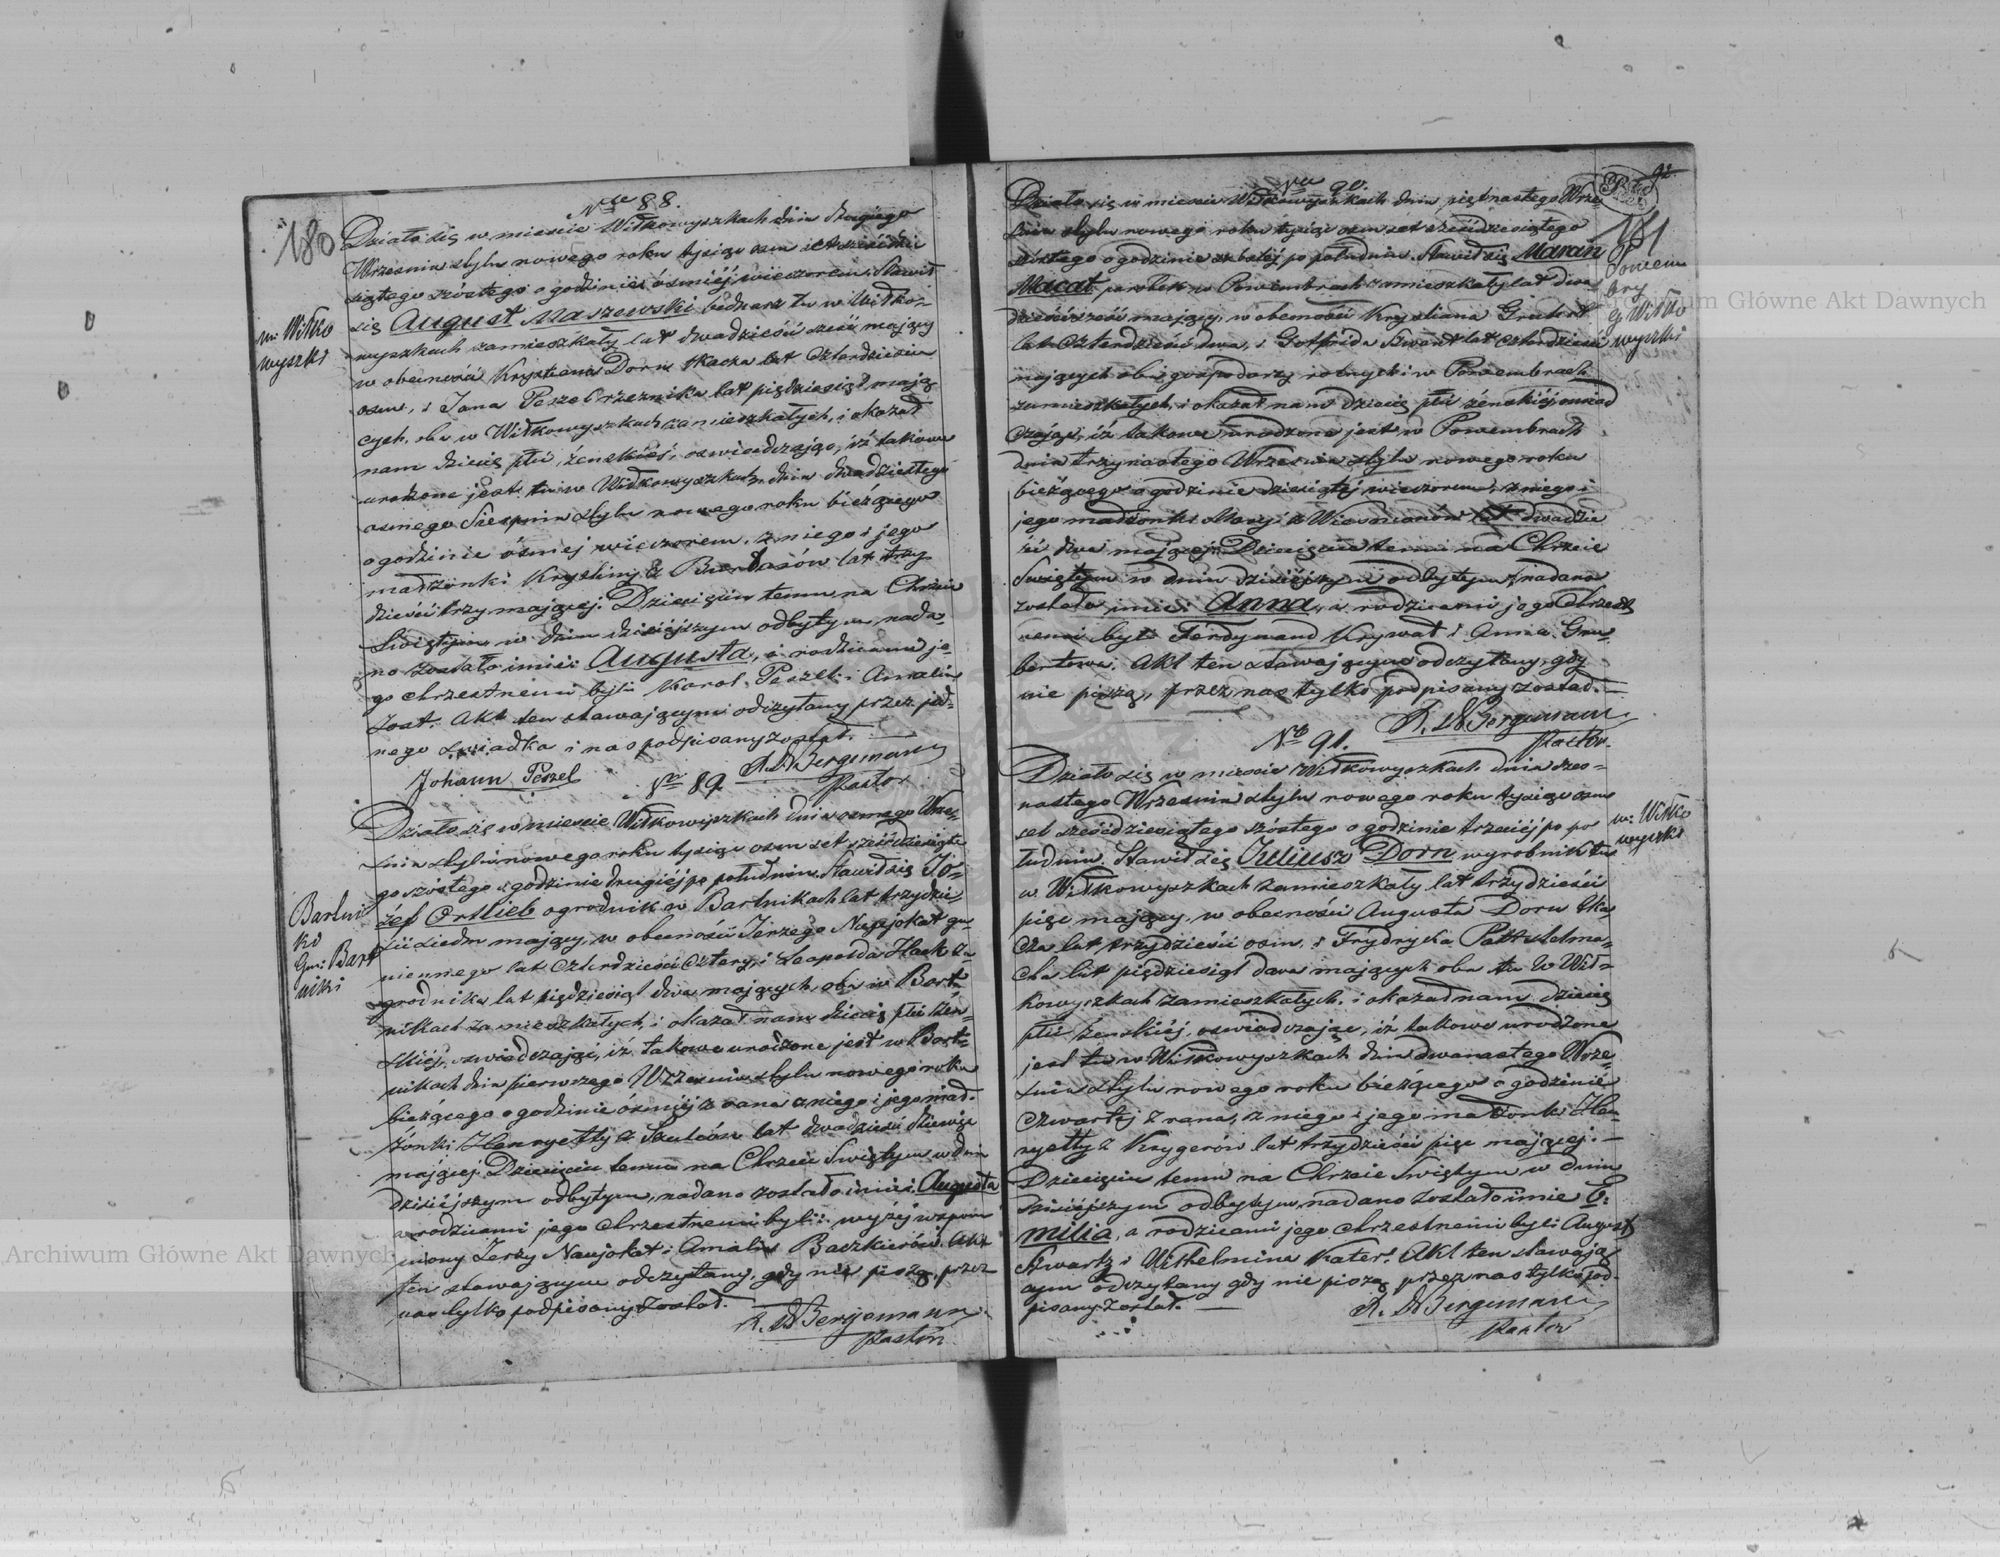 180
Nro 88.
Działo się w mieście Wiłkowyszkach dnia drugiego
Września stylu nowego roku tysiąc osm set sześćdzie
siątego szóstego o godzinie ósmej wieczorem. Stawił
się August Maszewski bednarz tu w Wiłko-
wyszkach zamieszkały lat dwadzieścia sześć mający
w obecności Krystiana Dorn tkacza lat czterdzieści
osm, i Jana Peszel rzeźnika lat pięćdziesiąt mają
cych, oba w Wiłkowyszkach zamieszkałych, i okazał
nam dziecię płci żeńskiéj, oswiadczając, iż takowe
urodzone jest tu w Wiłkowyszkach dnia dwudziestego
osmego Sierpnia stylu nowego roku bieżącego
o godzinie ósmej wieczorem, z niego i jego
małżonki Krystiny z lat trzy
dzieści trzy mającej. Dziecięciu temu na Chrzcie
Świętym w dniu dzisiéjszym odbytym nada-
no zostało imie: Augusta, a rodzicami je-
go chrzestnemi byli Karol Peszel i Amalia
Jost. Akt ten stawającym odczytany przez jed-
nego świadka i nas podpisany został.
Johann Peszel
R. W Bergemann
Pastor
m: Wiłko
wyszki
Nro 89
Działo się w mieście Wiłkowyszkach dnia osmego Wrze-
śnia stylu nowego roku tysiąc osm set sześćdziesiąte
go szóstego o godzinie drugiéj po południu. Stawił się Jó-
zef Ortlieb ogrodnik w Bartnikach lat trzydzie
ści siedm mający, w obecności Jerzego Naujokat gu-
miennego lat czterdzieści cztery, i Leopolda Hack o-
grodnika lat pięćdziesiąt dwa mających, oba w Bart-
nikach zamieszkałych, i okazał nam dziecię płci żeń-
skiéj, oswiadczając, iż takowe urodzone jest w Bart-
nikach dnia pierwszego Września stylu nowego roku
bieżącego o godzinie ósmej z rana z niego i jego mał-
żonki Henryetty z Szulców lat dwadzieścia dziewięć
mającej. Dziecięciu temu na Chrzcie Świętym w dniu
dzisiéjszym odbytym, nadano zostało imie: Augusta
a rodzicami jego chrzestnemi byli: wyżej wspom
niony Jerzy Naujokat i Amalia Baczkierów. Akt
ten stawającym odczytany, gdy nie piszą, przez
nas tylko podpisany został.
R. W Bergemann
Pastor
Bartni
ki
Gm: Bart
niki
92
181
Nro 90.
Działo się w mieście Wiłkowyszkach dnia piętnastego Wrze
śnia stylu nowego roku tysiąc osm set sześćdziesiątego
szóstego o godzinie szóstéj po południu. Stawił się Maran
Macat parobek w Powembrach zamieszkały lat dwa
dzieścia sześć mający, w obecności Krystiana Grubert
lat czterdzieści dwa, i Gotfrida Szwart lat czterdzieści
mających obu gospodarzy rolnych w Powembrach
zamieszkałych, i okazał nam dziecię płci żeńskiéj, oswiad
czając, iż takowe urodzone jest w Powembrach
dnia trzynastego Września stylu nowego roku
bieżącego o godzinie dziesiątéj wieczorem, z niego i
jego małżonki Maryi z lat dwadzie
ścia dwa mającej. Dziecięciu temu na Chrzcie
Świętym w dniu dzisiéjszym odbytym nadano
zostało imie: Anna, a rodzicami jego chrzest
nemi byli Ferdynand Krywat i Anna Gru-
bertowa. Akt ten stawającym odczytany, gdy
nie piszą, przez nas tylko podpisany został.
R. W Bergemann
Pastor
Powem
bry
G: Wiłko
wyszki
Nro 91.
Działo się w mieście Wiłkowyszkach dnia szes-
nastego Września stylu nowego roku tysiąc osm
set sześćdziesiątego szóstego o godzinie trzeciéj po po
łudniu. Stawił się Juliusz Dorn wyrobnik tu
w Wiłkowyszkach zamieszkały lat trzydzieści
pięć mający, w obecności Augusta Dorn tka
cza lat trzydzieści osm, i Frydrycha
lat pięćdziesiąt dwa mających oba tu w Wił-
kowyszkach zamieszkałych, i okazał nam dziecię
płci żeńskiéj, oswiadczając, iż takowe urodzone
jest tu w Wiłkowyszkach dnia dwunastego Wrze-
śnia stylu nowego roku bieżącego o godzinie
czwartéj z rana, z niego i jego małżonki Hen-
ryetty z Krygerów lat trzydzieści pięć mającej.
Dziecięciu temu na Chrzcie Świętym w dniu
dzisiéjszym odbytym, nadano zostało imie E-
milia, a rodzicami jego chrzestnemi byli August
Szwartz i Wilhelmina Kater. Akt ten stawają
cym odczytany gdy nie piszą przez nas tylko pod-
pisany został.
R. W Bergemann
Pastor
m: Wiłko
wyszki
Archiwum Główne Akt Dawnych
Archiwum Główne Akt Dawnych